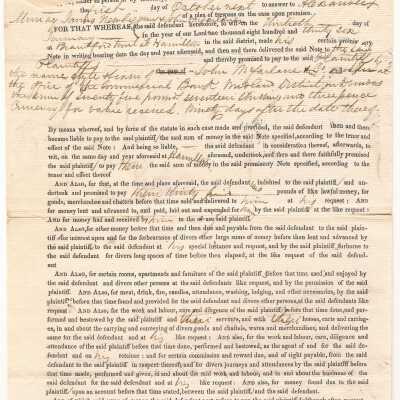 day of October next to answer to Alexander
of a plea of trespass on the case upon promises.
FOR THAT WHEREAS, the said defendant heretofore, to wit, on the thirtieth day of
in the year of our Lord one thousand eight hundred and thirty six
at Hamilton in the said district, made his certain promis- sory
Note in writing bearing date the day and year aforesaid, and then and there delivered the said Note to the said
and thereby promised to pay to the said
the name style of John McFarlane &
the office of the Commercial Bank Midland District
the sum of seventy five pounds seventeen shillings and three pence
currency for value received. Ninety days after the date thereof
By means whereof, and by force of the statute in such case made and provided, the said defendant then and there
became liable to pay to the said plaintiff the said sum of money in the said Note specified, according to the tenor and
effect of the said Note: And being so liable, the said defendant in consideration thereof, afterwards, to
wit, on the same day and year aforesaid at Hamilton aforesaid, undertook, and then and there faithfully promised
the said plaintiff to pay them the said sum of money in the said promissory Note specified, according to the
tenor and effect thereof
AND ALSO, for that, at the time and place aforesaid, the said defendant, indebted to the said plaintiff, and un-
dertook and promised to pay them pounds of like lawful money, for
goods, merchandize and chattels before that time sold and delivered to him at his request: And
for money lent and advanced to, and paid, laid out and expended for him by the said plaintiff at the like request:
And for money had and received by him to the use of the said plaintiff.
AND ALSO, for other money before that time and then due and payable from the said defendant to the said plain-
tiff for interest upon and for the forbearance of divers other large sums of money before then lent and advanced by
the said plaintiff, to the said defendant at his special instance and request, and by the said plaintiff, forborne to
the said defendant for divers long spaces of time before then elapsed, at the like request of the said defend-
ant
AND ALSO, for certain rooms, apartments and furniture of the said plaintiff before that time used and enjoyed by
the said defendant and divers other persons at the said defendants like request, and by the permission of the said
plaintiff. And also, for meat, drink, fire, candles, attendance, washing, lodging, and other necessaries, by the said
plaintiff before that time found and provided for the said defendant and divers other persons, at the said defendants like
request: And also, for the work and labour, care and diligence of the said plaintiff before that time done, and per-
formed and bestowed by the said plaintiff and their servants, and with their horses, carts and carriag-
es, in and about the carrying and conveying of divers goods and chattels, wares and merchandizes, and delivering the
same for the said defendant and at his like request: And also, for the work and labour, care, diligence and
attendance of the said plaintiff before that time done, performed and bestowed, as the agent of and for the said defend-
ant and on his retainer: and for certain commission and reward due, and of right payable, from the said
defendant to the said plaintiff in respect thereof; and for divers journeys and attendances by the said plaintiff before that
time made, performed and given, in and about the said work and labor, and in and about the business of the said
defendant for the said defendant and at his like request. And also, for money found due to the said
plaintiff upon an account before that time stated, between the said plaintiff, and the said defendant.